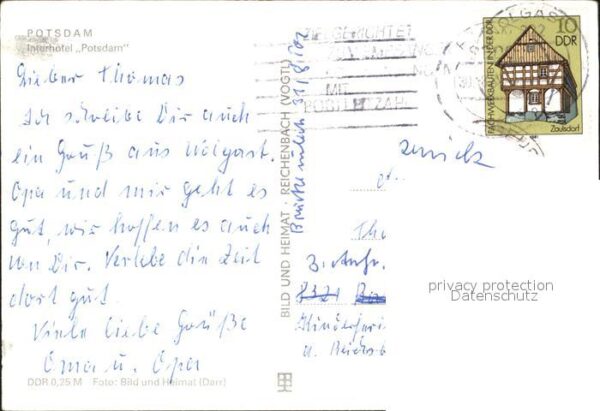 POTSDAM
Interhotel „Potsdam"
Lieber Thomas
Ich schreibe Dir auch
ein Gruß aus Wolgast.
Opa und mir geht es
gut, wir hoffen es auch
von Dir. Verlebe die Zeit
dort gut.
Viele liebe Grüße
Oma u. Opa
DDR 0,25 M Foto: Bild und Heimat (Darr)
BILD UND HEIMAT · REICHENBACH (VOGTL)
MIT
POSTLEITZAHL
WOLGAST
10
DDR
FACHWERKBAUTEN IN DER DDR
Zaulsdorf
zurück
Th
8321
Kinderheri
privacy protection
Datenschutz